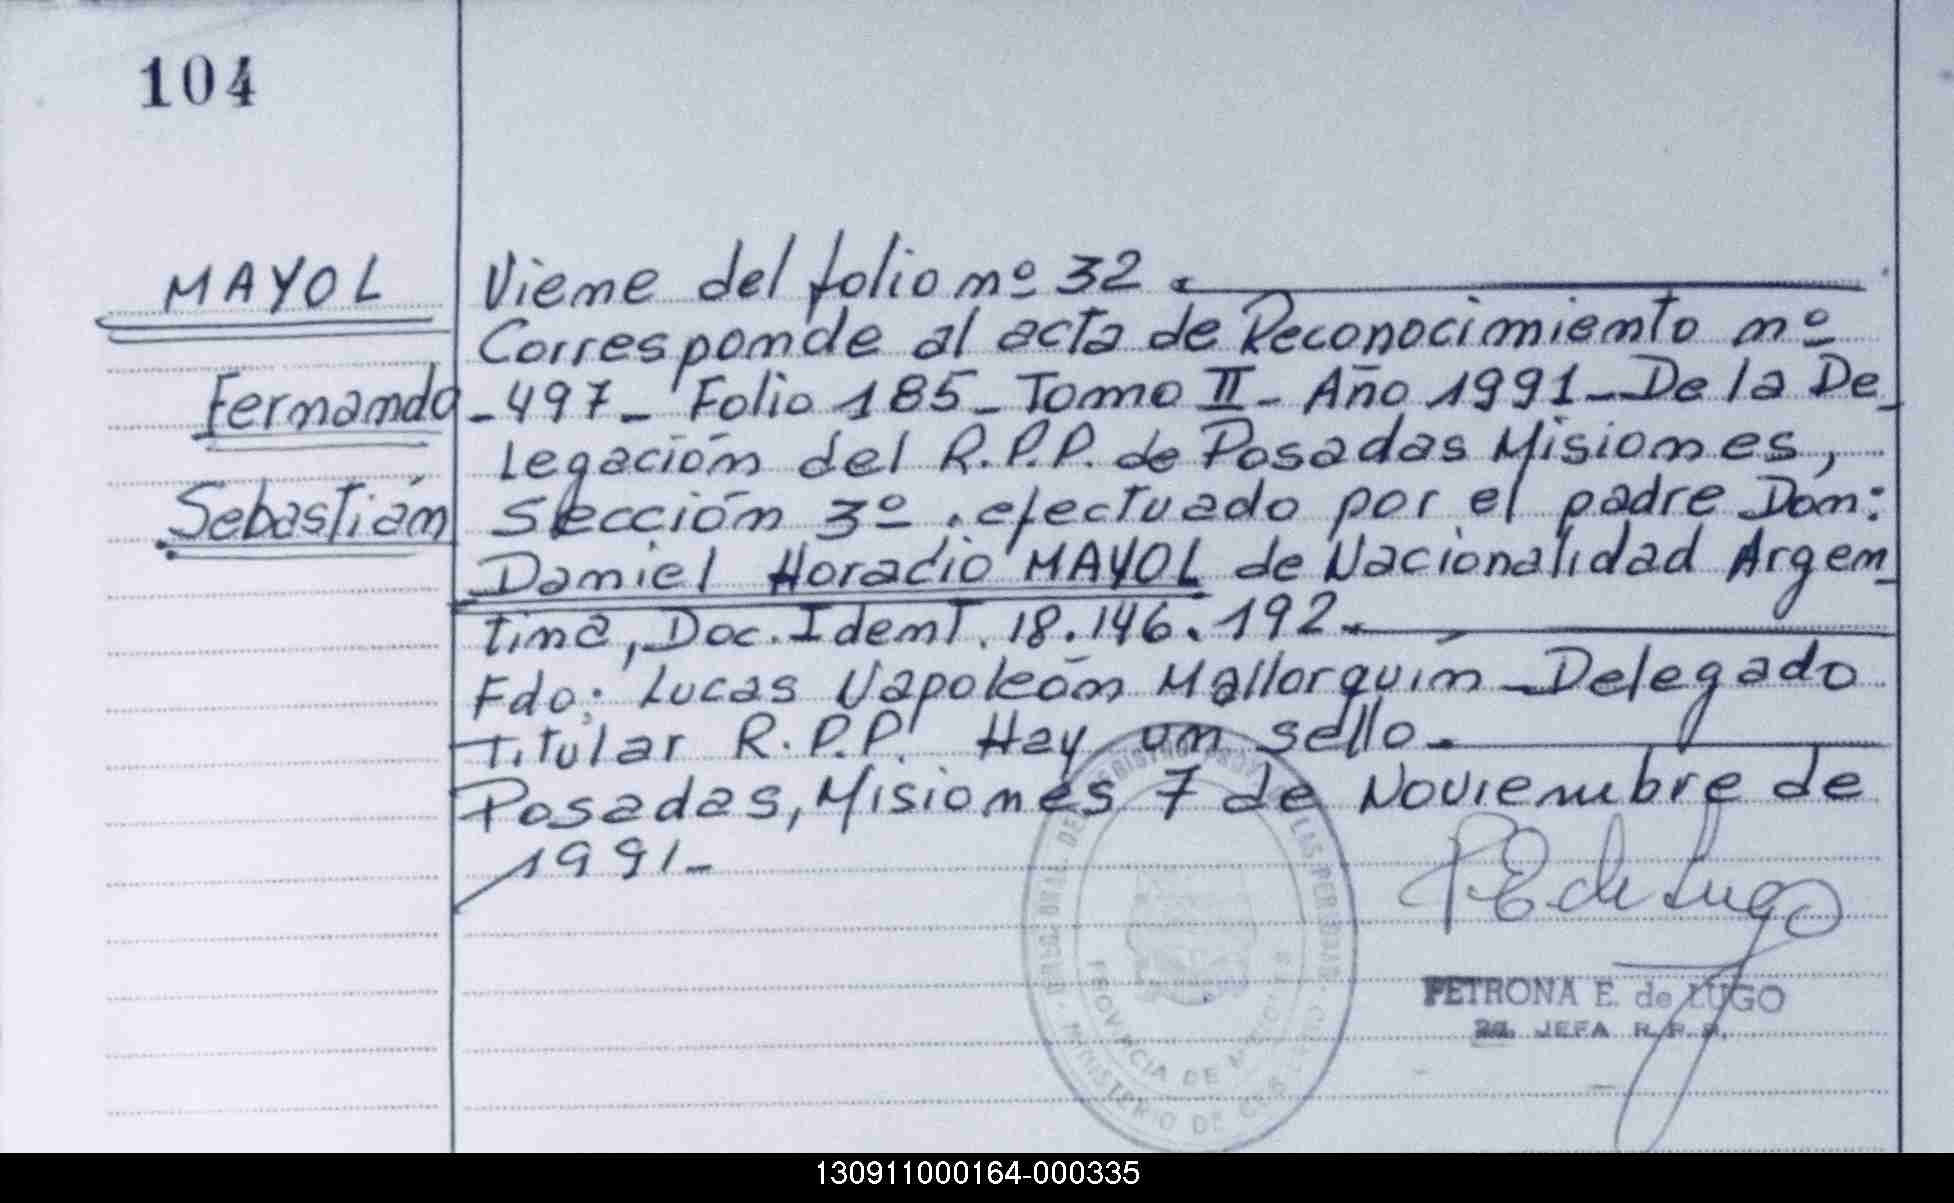 104
MAYOL
Fernando
Sebastián
Viene del folio nº 32.
Corresponde al acta de Reconocimiento nº
-497- Folio 185- Tomo II- Año 1991- De la De-
legación del R.P.P. de Posadas Misiones,
Sección 3º. efectuado por el padre Don:
Daniel Horacio MAYOL de Nacionalidad Argen-
tina, Doc. Ident. 18.146.192.
Fdo: Lucas Napoleón Mallorquin - Delegado
Titular R.P.P. Hay un sello.
Posadas, Misiones 7 de Noviembre de
1991-
P E de Lugo
PETRONA E. de LUGO
2a. JEFA R.P.P.
PROVINCIA DE MISIONES
MINISTERIO DE
130911000164-000335